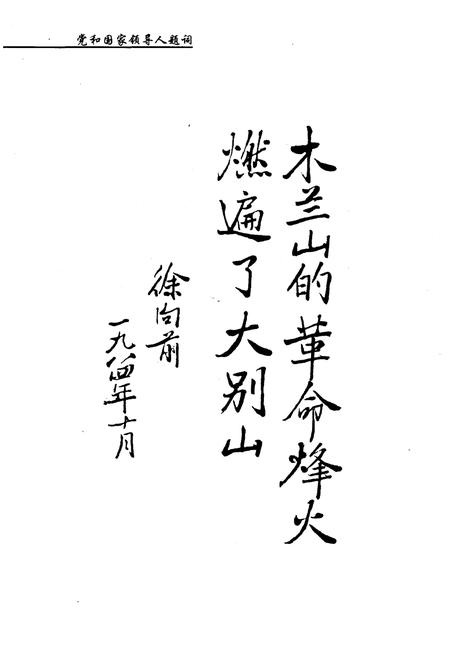 党和国家领导人题词
木兰山的革命烽火
燃遍了大别山
徐向前
一九八四年十月